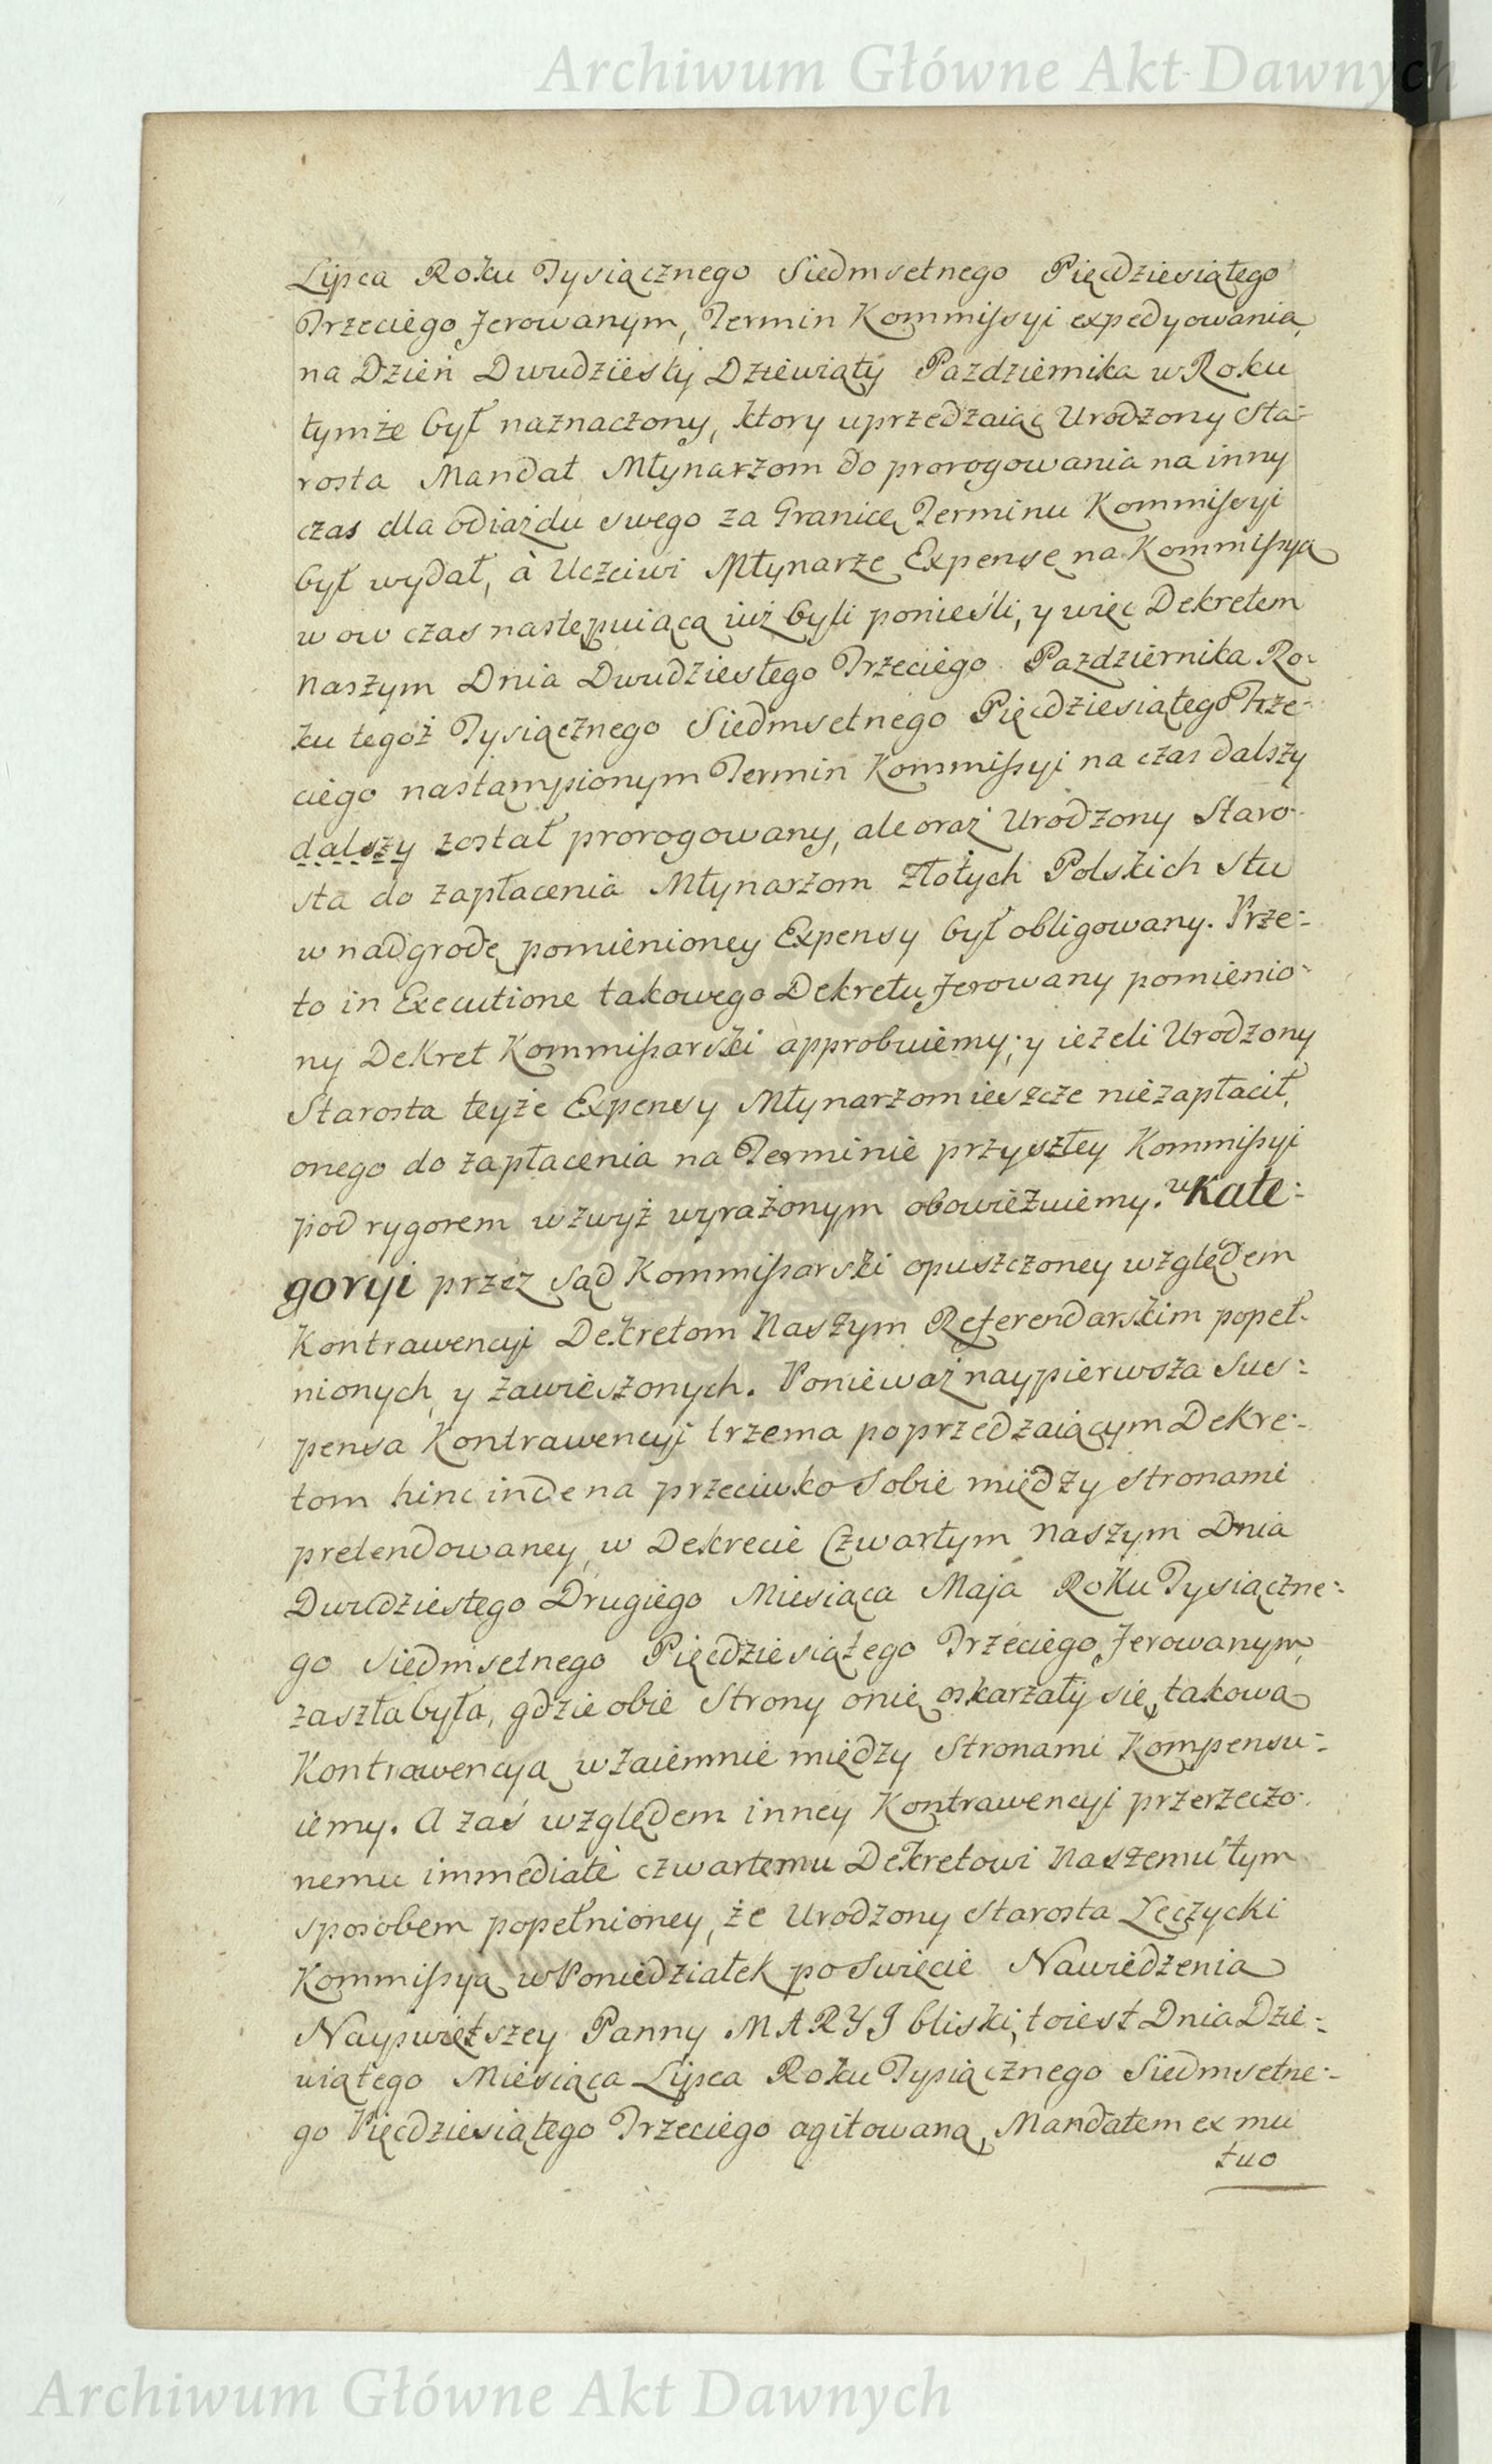 Archiwum Główne Akt Dawnych
Lipca Roku Tysiącznego Siedmsetnego Pięcdziesiątego
Trzeciego ferowanym, Termin Kommissyi expedyowania
na Dzień Dwudziesty Dziewiąty Pazdziernika w Roku
tymże był naznaczony, ktory uprzedzaiąc Urodzony Sta=
rosta Mandat Młynarzom do prorogowania na inny
czas dla odiazdu swego za Granicę Terminu Kommissyi
był wydał, à Uczciwi Młynarze Expensę na Kommissyą
w ow czas następuiącą iuż byli ponieśli, y więc Dekretem
Naszym Dnia Dwudziestego Trzeciego Pazdziernika Ro=
ku tegoż Tysiącznego Siedmsetnego Pięcdziesiątego Trze=
ciego nastąmpionym Termin Kommissyi na czas dalszy
dalszy został prorogowany, ale oraz Urodzony Staro=
sta do zapłacenia Młynarzom Złotych Polskich Stu
w nadgrodę pomienioney Expensy był obligowany. Prze=
to in Executione takowego Dekretu ferowany pomienio=
ny Dekret Kommissarski approbuiemy; y ieżeli Urodzony
Starosta teyże Expensy Młynarzom ieszcze niezapłacił,
onego do zapłacenia na Terminie przyszłey Kommissyi
pod rygorem wzwyż wyrażonym obowięzuiemy. w Kate=
goryi przez Sąd Kommissarski opuszczoney względem
Kontrawencyi Dekretom Naszym Referendarskim popeł=
nionych y zawieszonych. Ponieważ naypierwsza Sus=
pensa Kontrawencyi trzema poprzedzaiącym Dekre=
tom hinc inde na przeciwko Sobie między Stronami
pretendowaney w Dekrecie Czwartym Naszym Dnia
Dwudziestego Drugiego Miesiąca Maja Roku Tysiączne=
go Siedmsetnego Pięcdziesiątego Trzeciego ferowanym,
zaszła była, gdzie obie Strony onię oskarzały się, takową
Kontrawencyą wzaiemnie między Stronami Kompensu=
iemy. A zaś względem inney Kontrawencyi przerzeczo=
nemu immediatè czwartemu Dekretowi Naszemu tym
sposobem popełnioney, że Urodzony Starosta Łęczycki
Kommissyą w Poniedziałek po Swięcie Nawiedzenia
Nayswiętszey Panny MARYI bliski, to iest Dnia Dzie=
wiątego Miesiąca Lipca Roku Tysiącznego Siedmsetne=
go Pięcdziesiątego Trzeciego agitowaną, Mandatem ex mu
tuo
Archiwum Główne Akt Dawnych